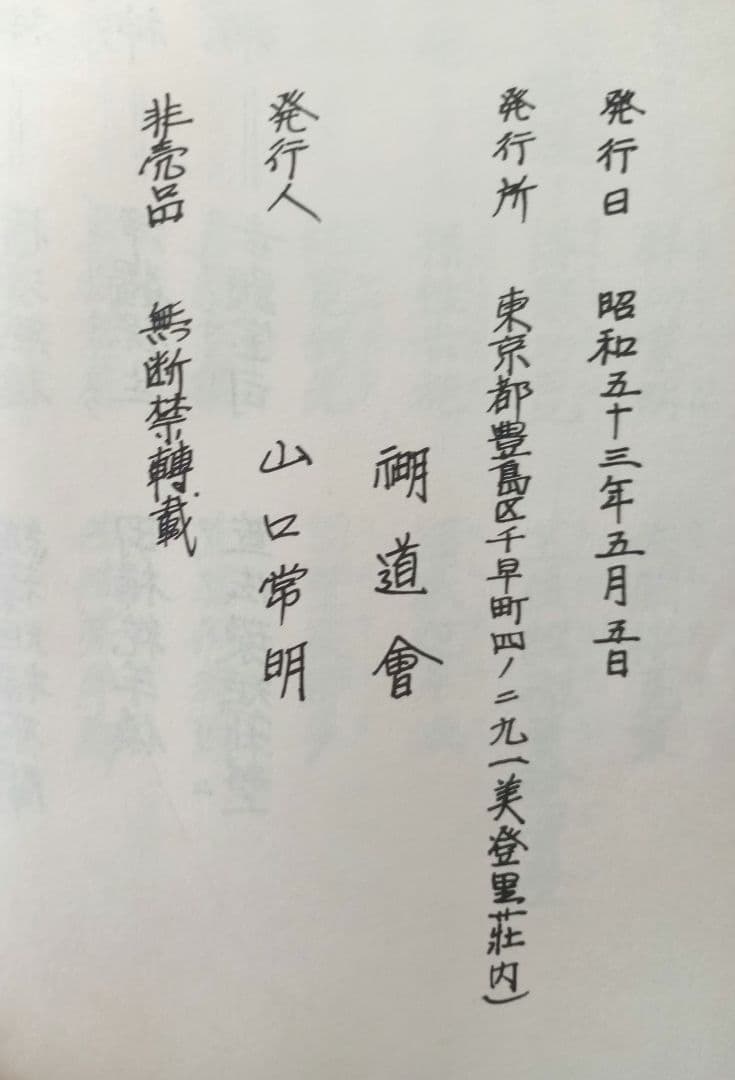 発行日 昭和五十三年五月五日
発行所 東京都豊島区千早町四ノ二九(美登里莊内)
道會
発行人 山口常明
非売品 無断禁轉載